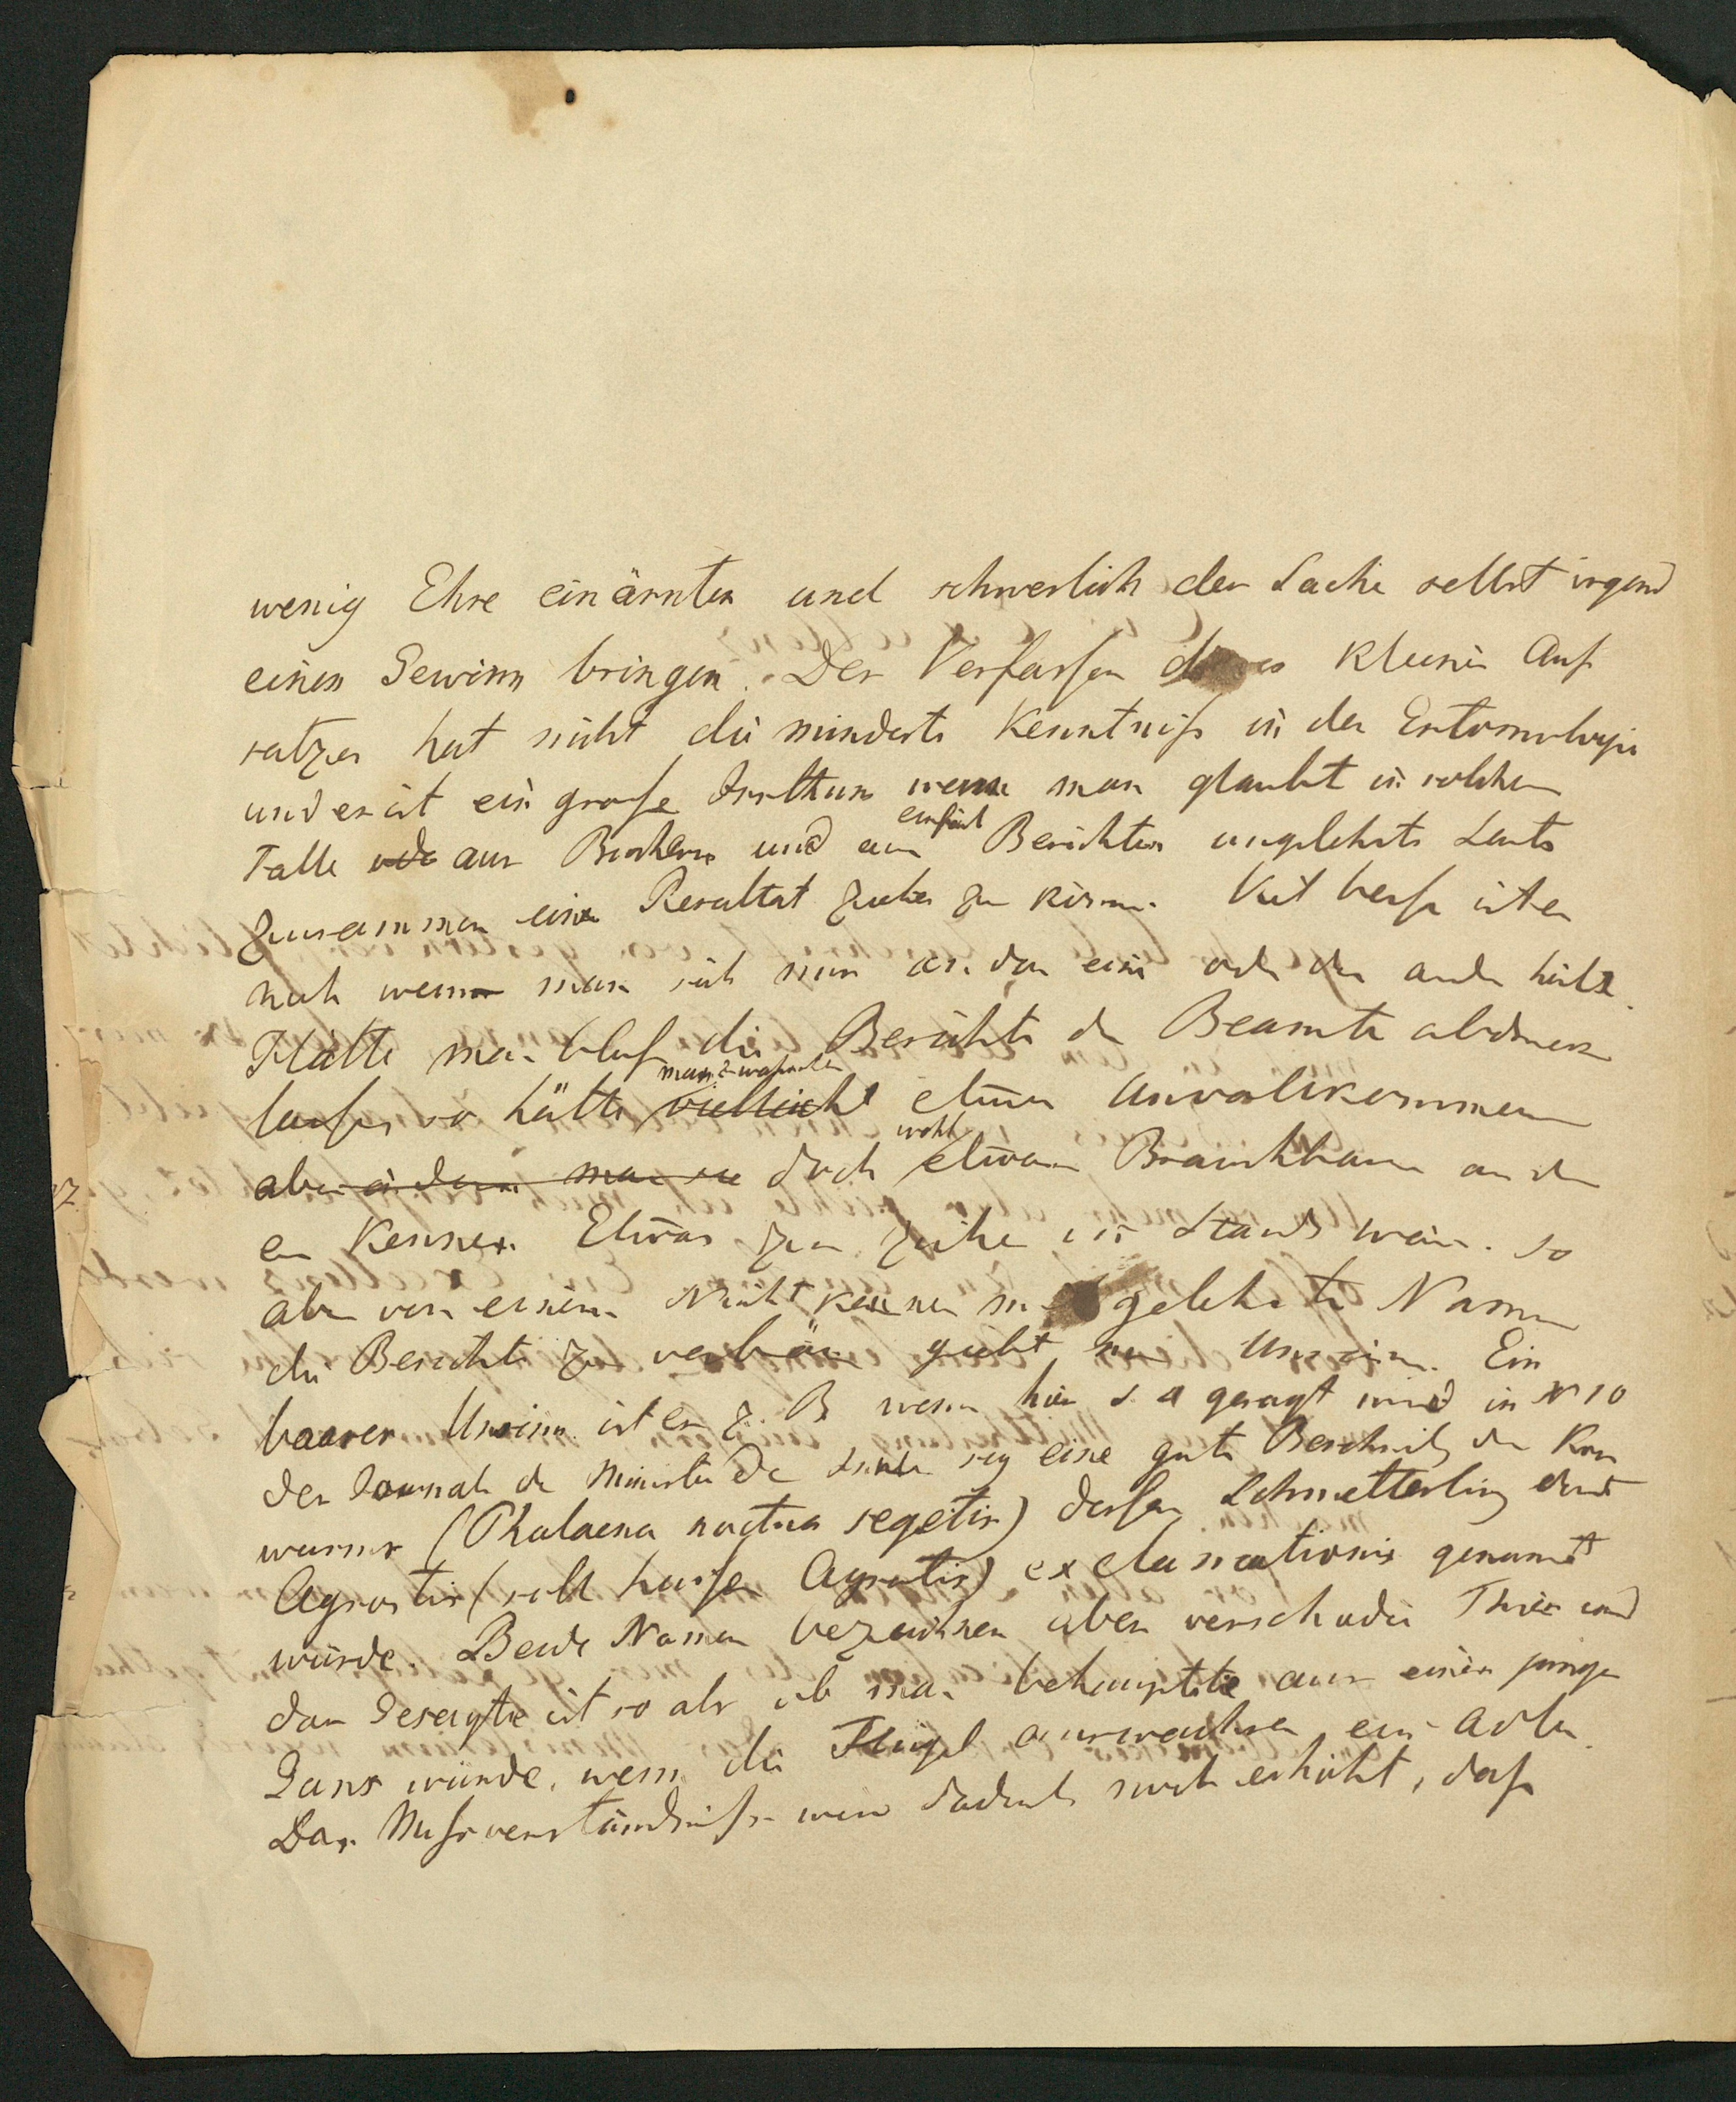 wenig Ehre einärnten und schwerlich der Sache selbst irgend
einen Gewinn bringen. Der Verfasser dieses kleinen Auf
satzes hat nicht die mindeste Kenntniß in der Entomologie
und es ist ein große Irrthum wenn man glaubt in solchem
einfach
Falle oder aus Büchern und aus Berichten ungelehrte Leute
zusammen eine Resultat ziehen zu können. Viel besser ist es
noch wenn man sich nur an das eine oder das andere hält.
Hätte man bloß die Berichte der Beamte abdrucken
man zwar
laßen so hätte vielleicht etwas Unvollkommenes
wohl
aber indem man sie doch etwas Brauchbares an dem
ein Kenner Etwas zu ziehen im Stande wäre. so
aber von einem Nichtkenner mit gelehrte Namen
die Berichte zu giebt nur Unsinn. Ein
baarer Unsinn ist es z. B wenn hier S. 4 gesagt wird in N 10
des Journals de Ministe de sey eine gute Beschreib des Korn
wurms (Phalaena noctua segetis) dessen Schmetterling dort
Agrostis (soll heißen Agrotis) exclamationis genannt
würde. Beide Namen bezeichnen aber verschiedne Thiere und
das Gesagte ist so als ob man behauptete aus einer jungen
Gans würde, wenn die Flügel auswachsen, ein Adler.
Das Mißverständniß wird dadurch noch erhöht, daß